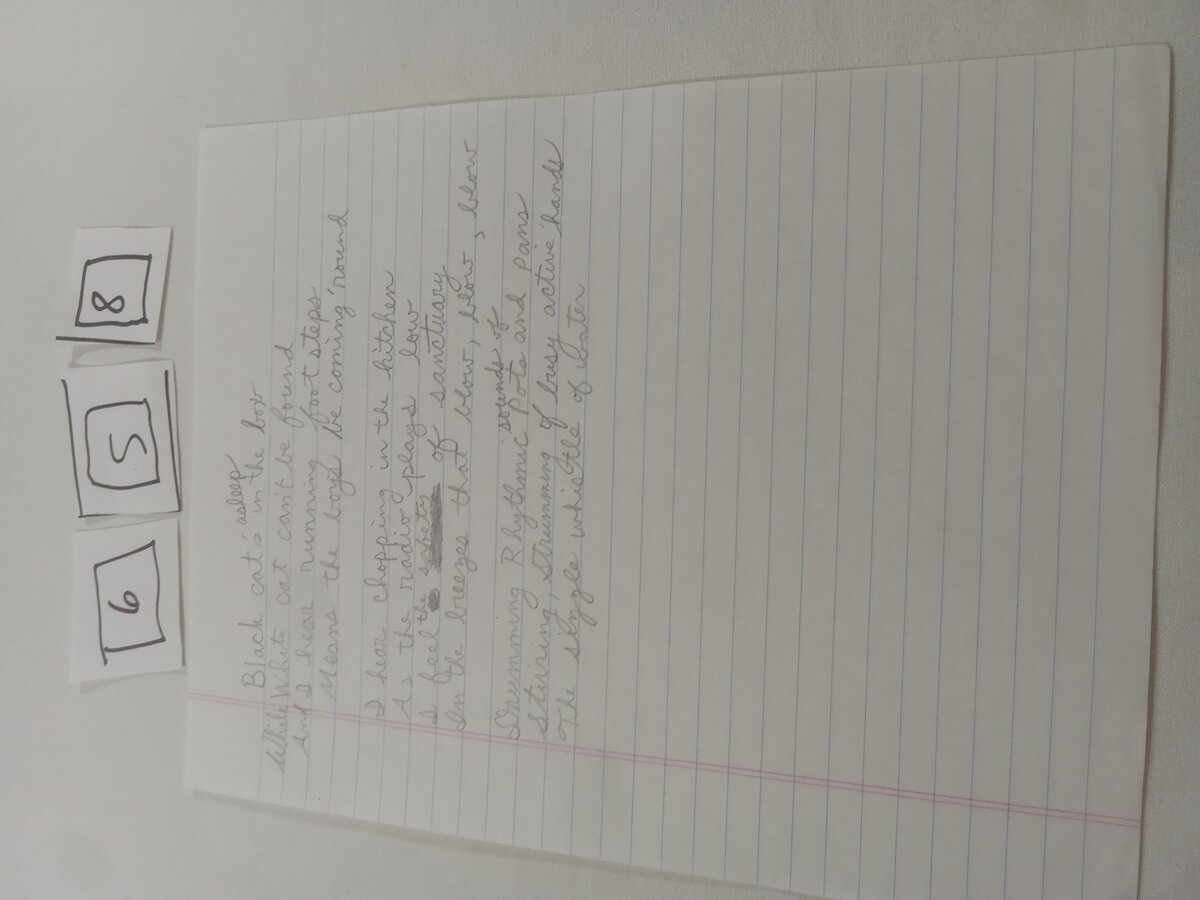 6 5 8
Black cat's asleep in the box
While White cat can't be found
And I hear running foot steps
Means the boys be coming 'round
I hear chopping in the kitchen
As the radio plays low
I feel the safety of sanctuary
In the breezes that blow, blow, blow
Drumming Rhythmic sounds of Pots and Pans
Stirring, strumming of busy active hands
The sizzle whistle of water